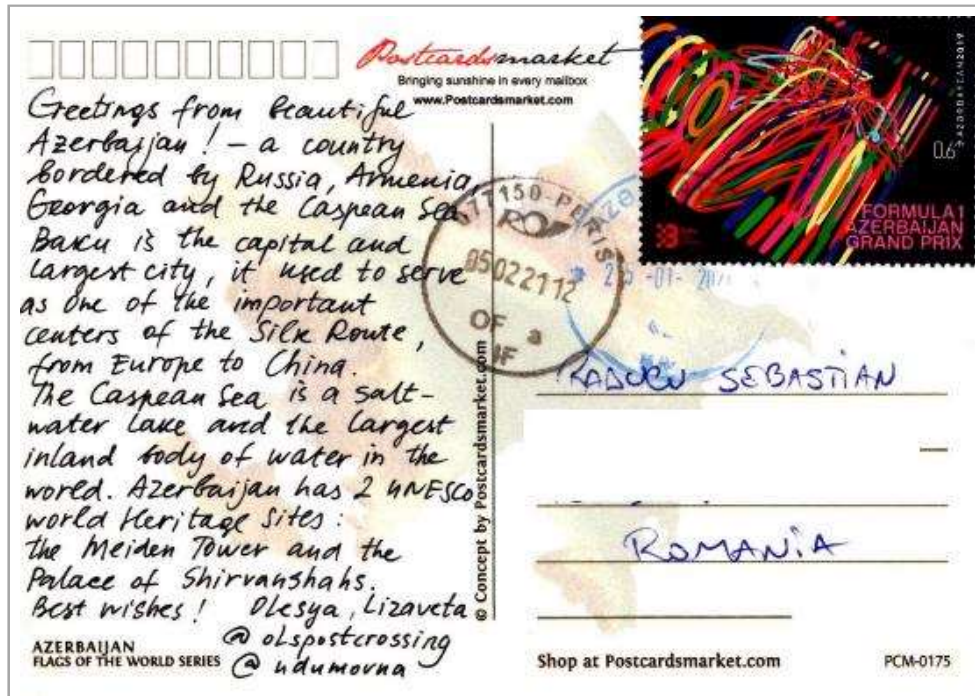 Postcardsmarket
Bringing sunshine in every mailbox
www.Postcardsmarket.com
Greetings from beautiful
Azerbaijan! – a country
bordered by Russia, Armenia,
Georgia and the Caspean Sea.
Baku is the capital and
largest city, it used to serve
as one of the important
centers of the Silk Route,
from Europe to China.
The Caspean Sea is a salt-
water lake and the largest
inland body of water in the
world. Azerbaijan has 2 UNESCO
world Heritage Sites:
the Meiden Tower and the
Palace of Shirvanshahs.
Best wishes! Olesya, Lizaveta
@olspostcrossing
@udumovna
AZERBAIJAN
FLAGS OF THE WORLD SERIES
© Concept by Postcardsmarket.com
AZƏRBAYCAN 2019
0.6
FORMULA 1
AZERBAIJAN
GRAND PRIX
77150-PERIS
05022112
OF a
IF
SEBASTIAN
ROMANIA
Shop at Postcardsmarket.com
PCM-0175